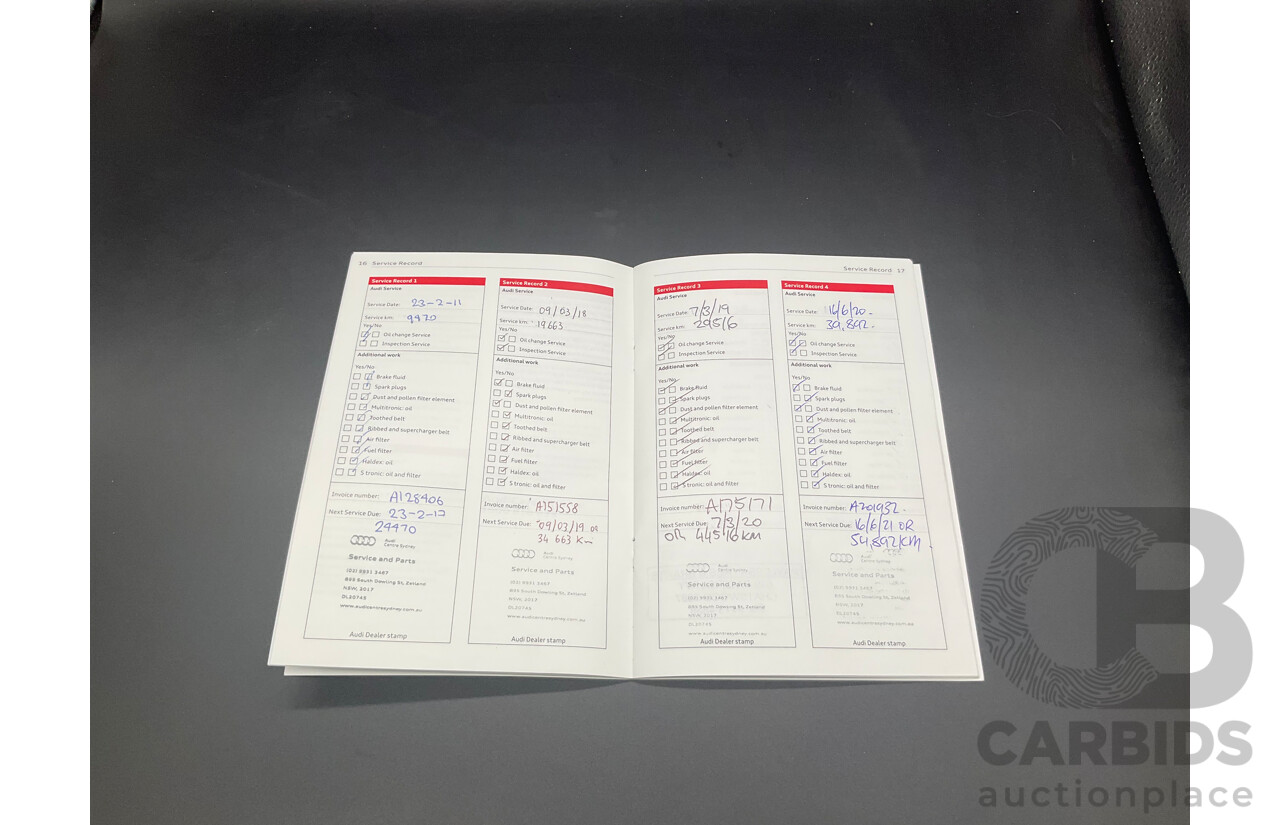 16 Service Record
Service Record 1
Audi Service
Service Date: 23-2-11
Service km: 9970
Yes/No
Oil change Service
Inspection Service
Additional work
Yes/No
Brake fluid
Spark plugs
Dust and pollen filter element
Multitronic: oil
Toothed belt
Ribbed and supercharger belt
Air filter
Fuel filter
Haldex: oil
S tronic: oil and filter
Invoice number: A128406
Next Service Due: 23-2-12
24470
Audi
Centre Sydney
Service and Parts
895 South Dowling St, Zetland
NSW, 2017
DL20745
www.audicentresydney.com.au
Audi Dealer stamp
Service Record 2
Audi Service
Service Date: 09/03/18
Service km: 19663
Yes/No
Oil change Service
Inspection Service
Additional work
Yes/No
Brake fluid
Spark plugs
Dust and pollen filter element
Multitronic: oil
Toothed belt
Ribbed and supercharger belt
Air filter
Fuel filter
Haldex: oil
S tronic: oil and filter
Invoice number: A151558
Next Service Due: 09/03/19 OR
34 663 Km
Audi
Centre Sydney
Service and Parts
NSW, 2017
DL20745
www.audicentresydney.com.au
Audi Dealer stamp
Service Record 17
Service Record 3
Audi Service
Service Date: 7/3/19
Service km: 29516
Yes/No
Oil change Service
Inspection Service
Additional work
Yes/No
Brake fluid
Spark plugs
Dust and pollen filter element
Multitronic: oil
Toothed belt
Ribbed and supercharger belt
Air filter
Fuel filter
Haldex: oil
S tronic: oil and filter
Invoice number: A175171
Next Service Due: 7/3/20
OR 44516 KM
Audi
Centre Sydney
Service and Parts
NSW, 2017
DL20745
www.audicentresydney.com.au
Audi Dealer stamp
Service Record 4
Audi Service
Service Date: 16/6/20.
Service km: 39,892.
Yes/No
Oil change Service
Inspection Service
Additional work
Yes/No
Brake fluid
Spark plugs
Dust and pollen filter element
Multitronic: oil
Toothed belt
Ribbed and supercharger belt
Air filter
Fuel filter
Haldex: oil
S tronic: oil and filter
Invoice number: A201932.
Next Service Due: 16/6/21 OR
54,892KM.
Audi
Centre Sydney
Service and Parts
NSW, 2017
DL20745
Audi Dealer stamp
CB
CARBIDS
auctionplace